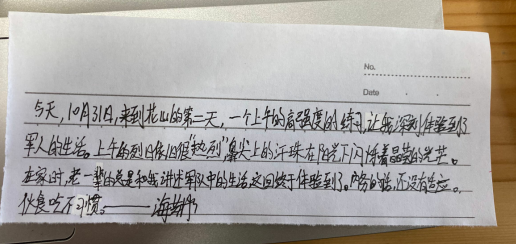 No.
Date
今天,10月31日,来到花山的第二天,一个上午的高强度的练习,让我深刻体验到了
军人的生活。上午的烈日依旧很"热烈"鼻尖上的汗珠在阳光下闪烁着晶莹的光芒。
在家时,老一辈的总是和我讲述军队中的生活,这回终于体验到了。内务的话,还没有适应。
伙食吃不习惯。——海